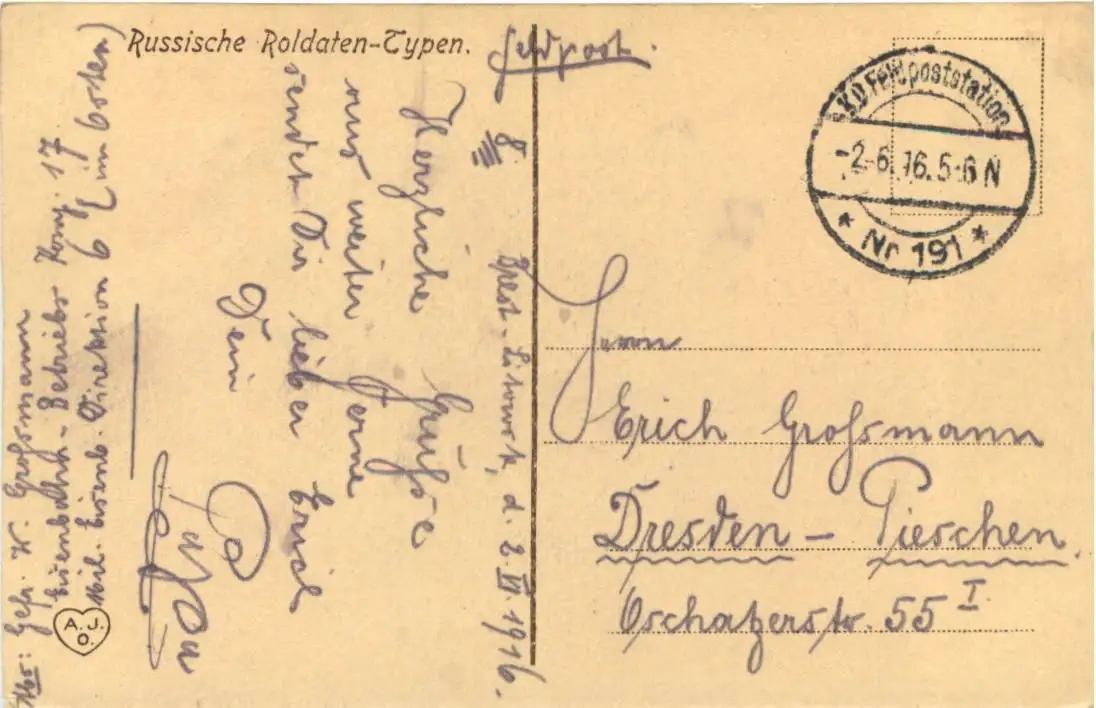 Russische Roldaten-Typen.
Feldpost.
8.
Brest-Litowsk, d. 2. VI. 1916.
Herzliche Grüße
aus weiter Ferne
sendet Dir lieber Erich
Dein
Abs: Gefr. W. Großmann
Eisenbahn-Betriebs Komp. 17
Mil. Eisenb. Direktion 6 (im Osten)
A. J.
O.
K.D. Feldpoststation
-2.6.16.5-6 N
* Nr 191 *
Herrn
Erich Großmann
Dresden - Pieschen.
Oschatzerstr. 55 I.